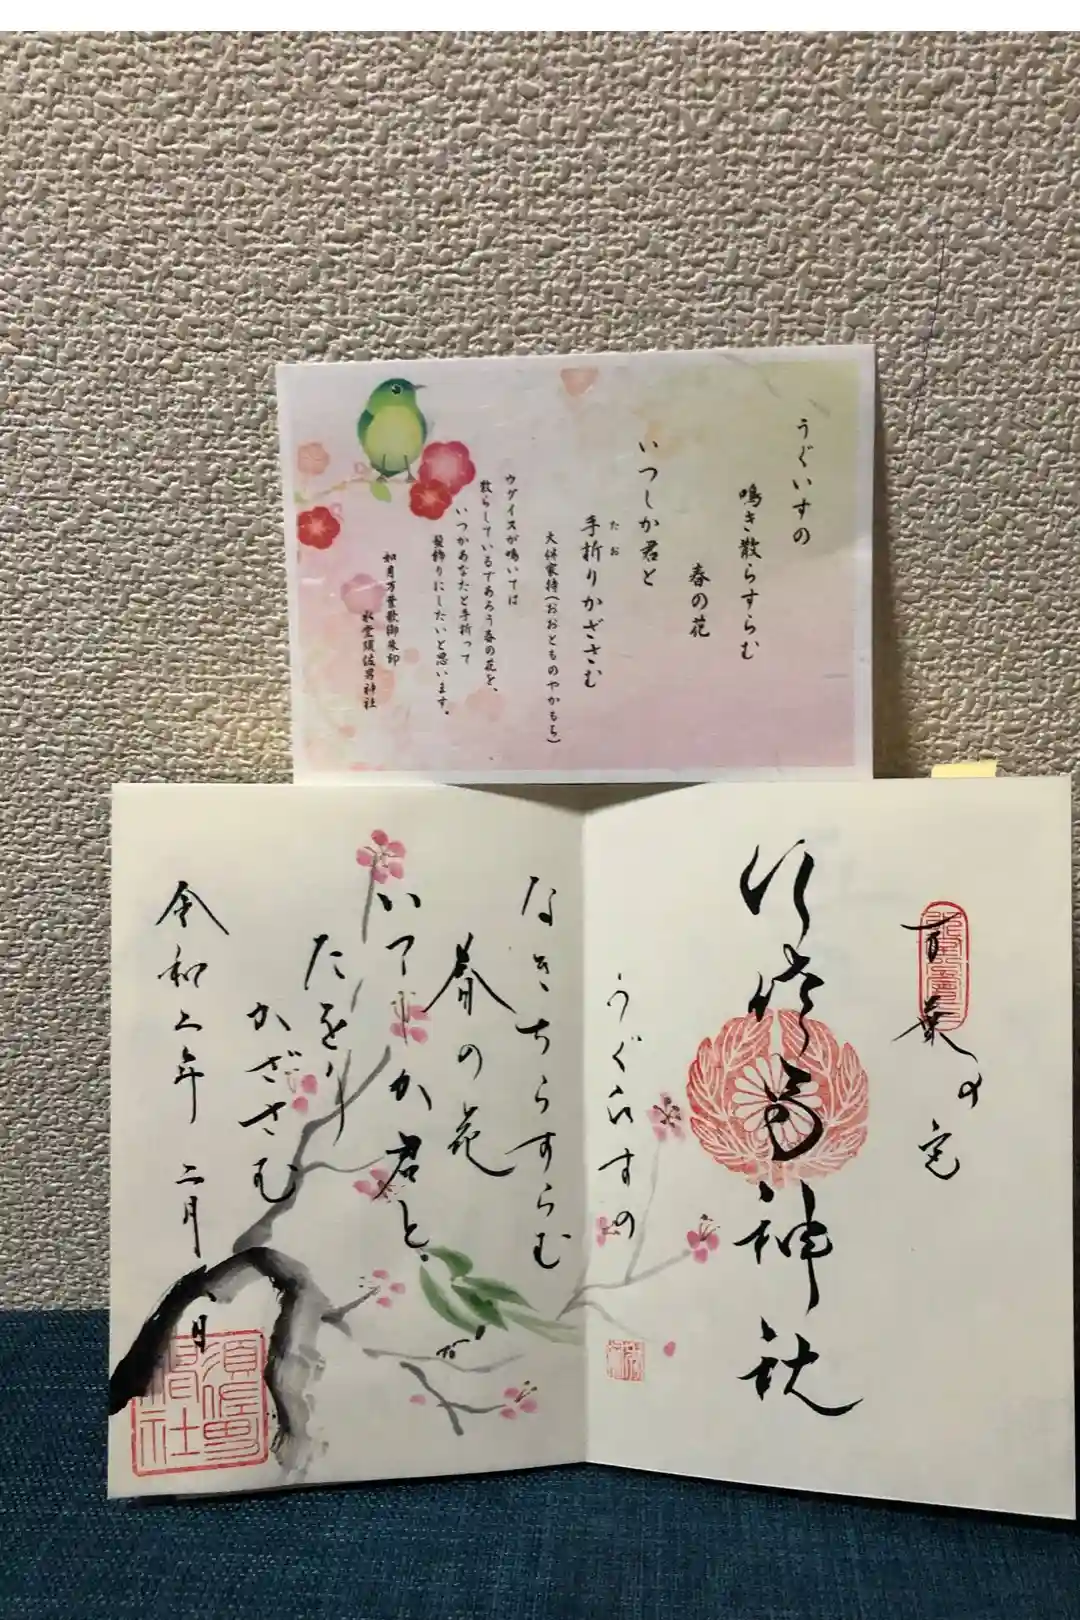 うぐいすの
鳴き散らすらむ
春の花
いつしか君と
たお
手折りかざさむ
大伴家持(おおとものやかもち)
ウグイスが鳴いては
散らしているであろう春の花を、
いつかあなたと手折って
髪飾りにしたいと思います。
如月万葉歌御朱印
水堂須佐男神社
万葉の宅
須佐男神社
うぐひすの
なきちらすらむ
春の花
いつしか君と
たをり
かざさむ
令和二年 二月 八日
須佐男
神社